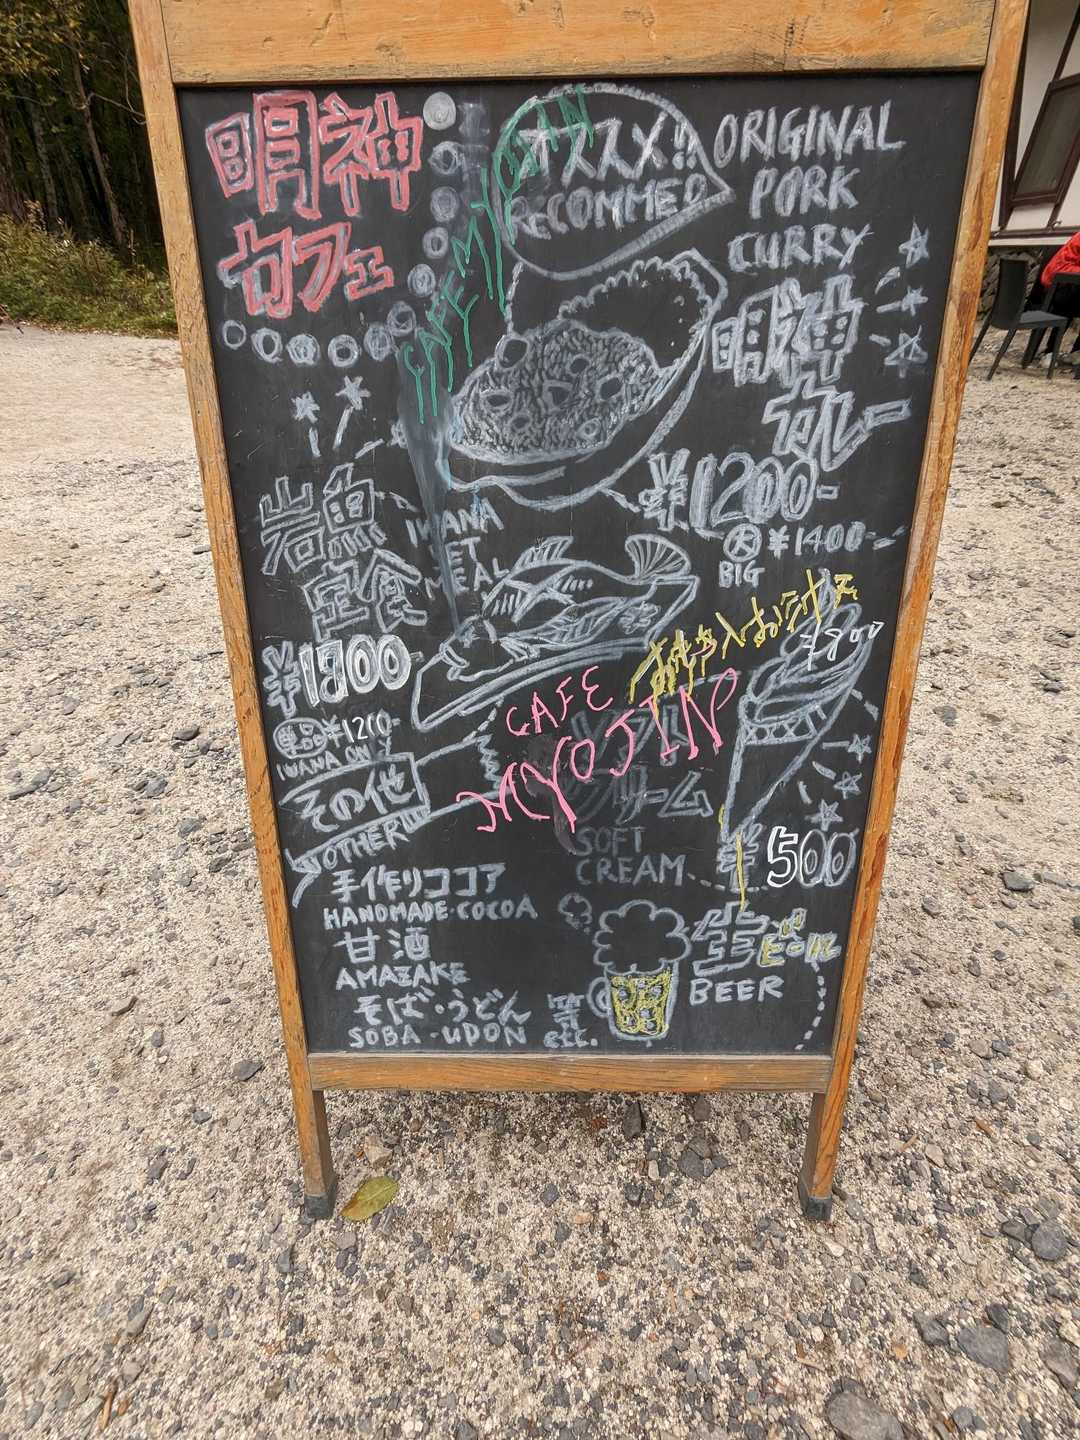 明神
カフェ
CAFE MYOJIN
オススメ!!
RECOMMED
ORIGINAL
PORK
CURRY
明神
カレー
¥1200-
大 ¥1400-
BIG
岩魚
定食
IWANA
SET
MEAL
¥1800
単品 ¥1200-
IWANA ONLY
CAFE
MYOJIN
ソフト
クリーム
SOFT
CREAM
¥500
その他
OTHER
手作りココア
HANDMADE・COCOA
甘酒
AMAZAKE
そば・うどん
SOBA・UDON
等
etc.
生ビール
BEER